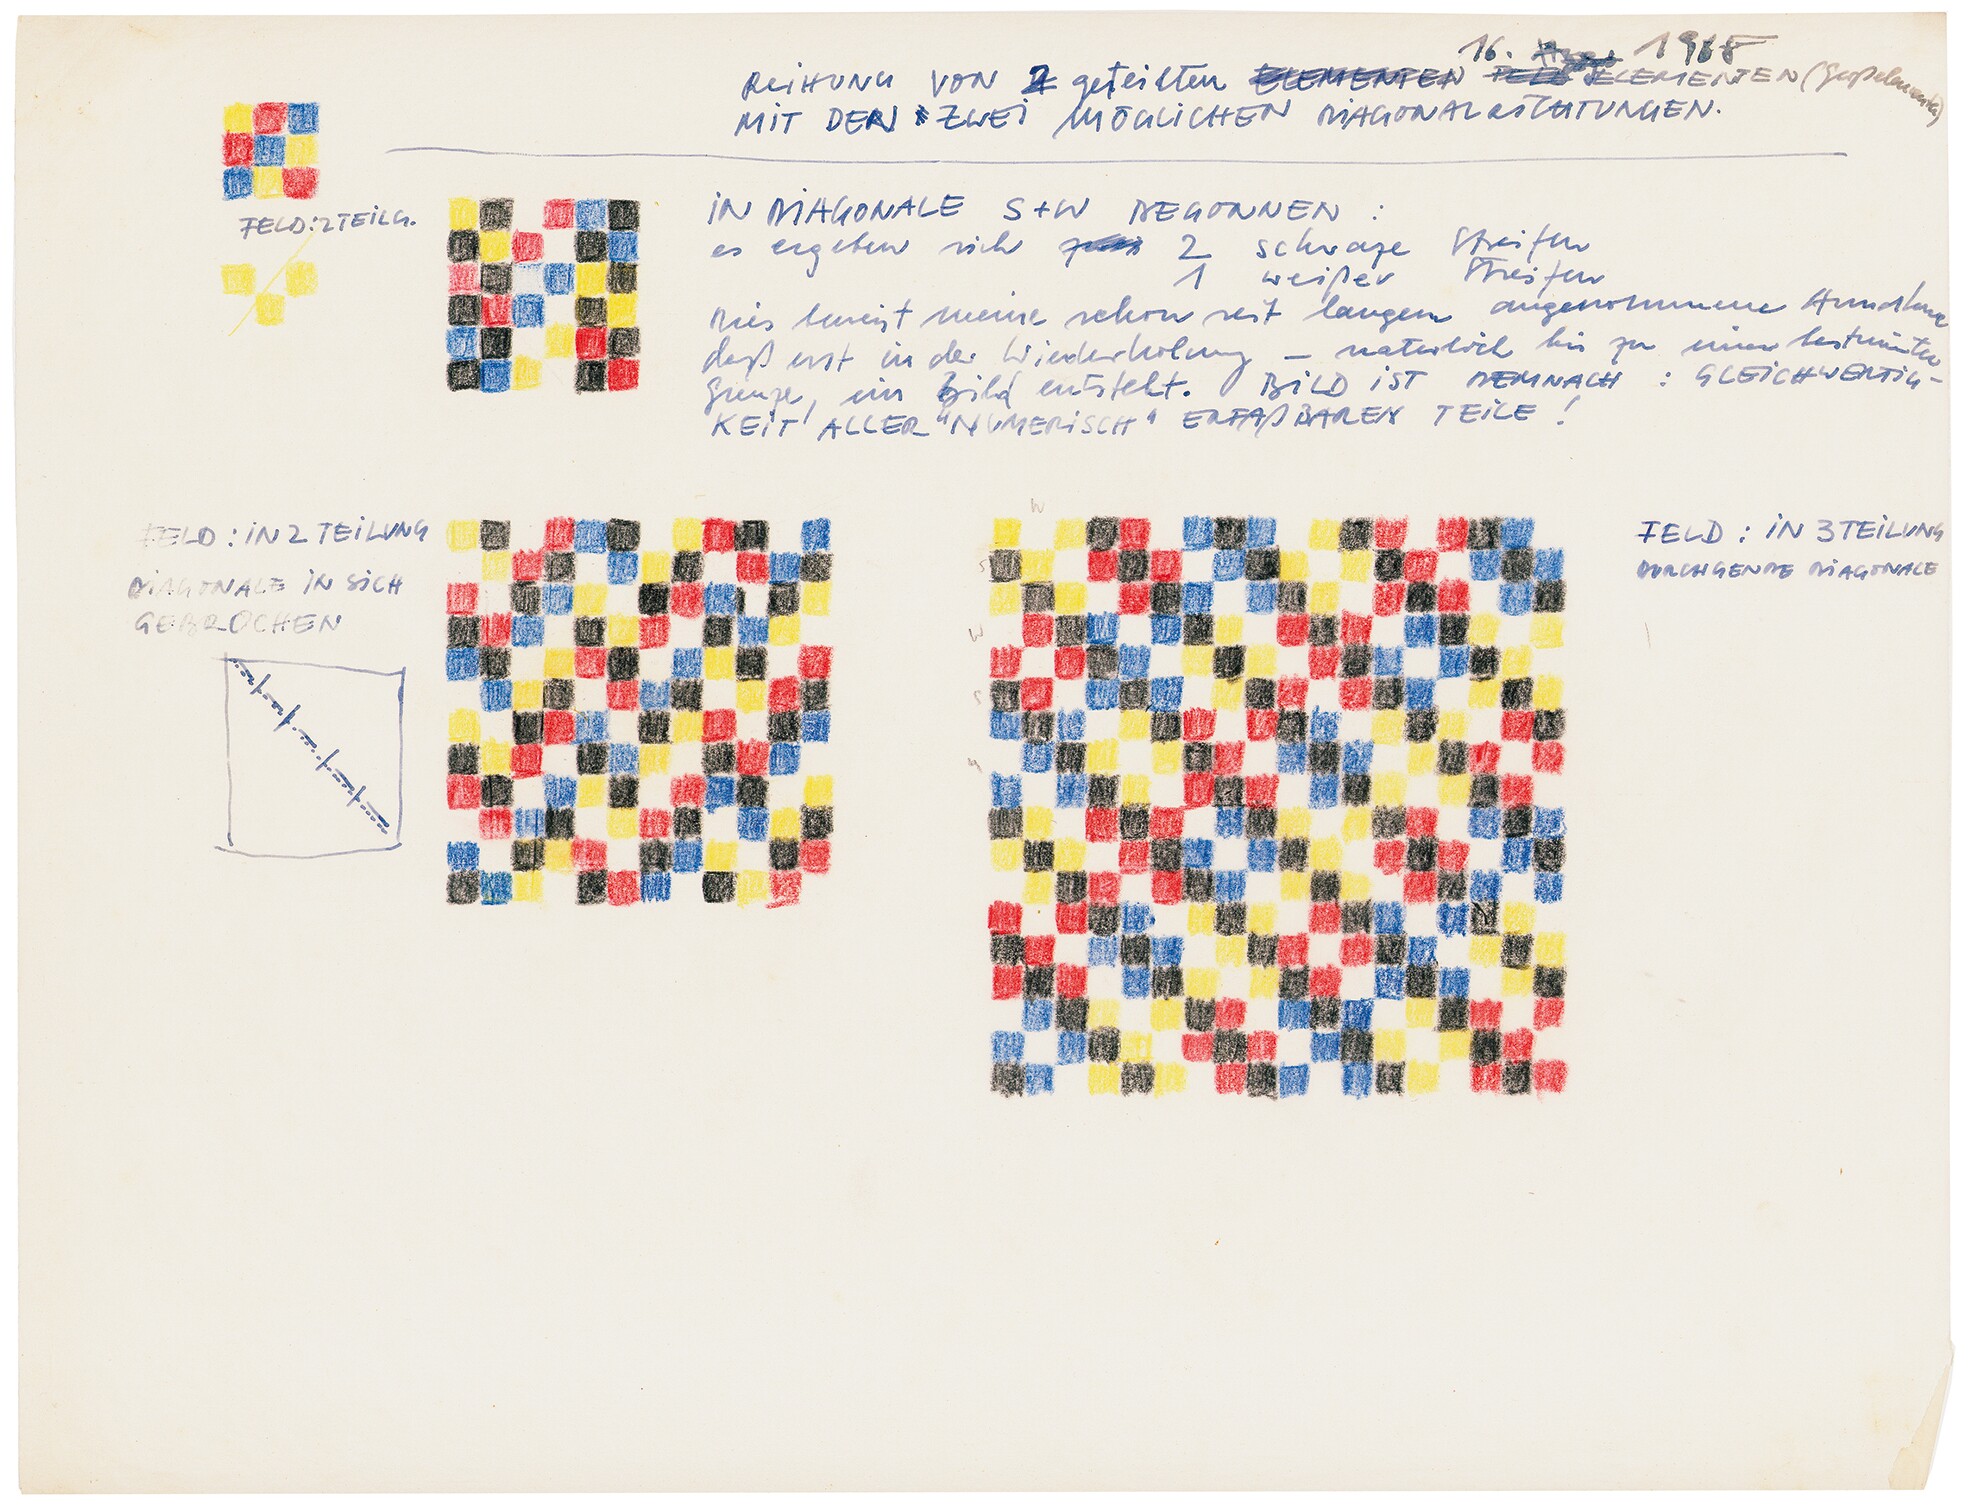 16. 1968
REIHUNG VON 2 geteilten ELEMENTEN ELEMENTEN
MIT DEN ZWEI MÖGLICHEN DIAGONALRICHTUNGEN.
FELD: 2 TEILG.
IN DIAGONALE S+W BEGONNEN :
es ergeben sich 2 schwarze Streifen
1 weißer Streifen
Dies beweist meine schon seit langem angenommene
daß erst in der Wiederholung – natürlich bis zu einer bestimmten
Grenze, ein Bild entsteht. BILD IST DEMNACH : GLEICHWERTIG-
KEIT ALLER "NUMERISCH" ERFAßBAREN TEILE !
FELD : IN 2 TEILUNG
DIAGONALE IN SICH
GEBROCHEN
W
S
W
S
FELD : IN 3 TEILUNG
DURCHGENDE DIAGONALE